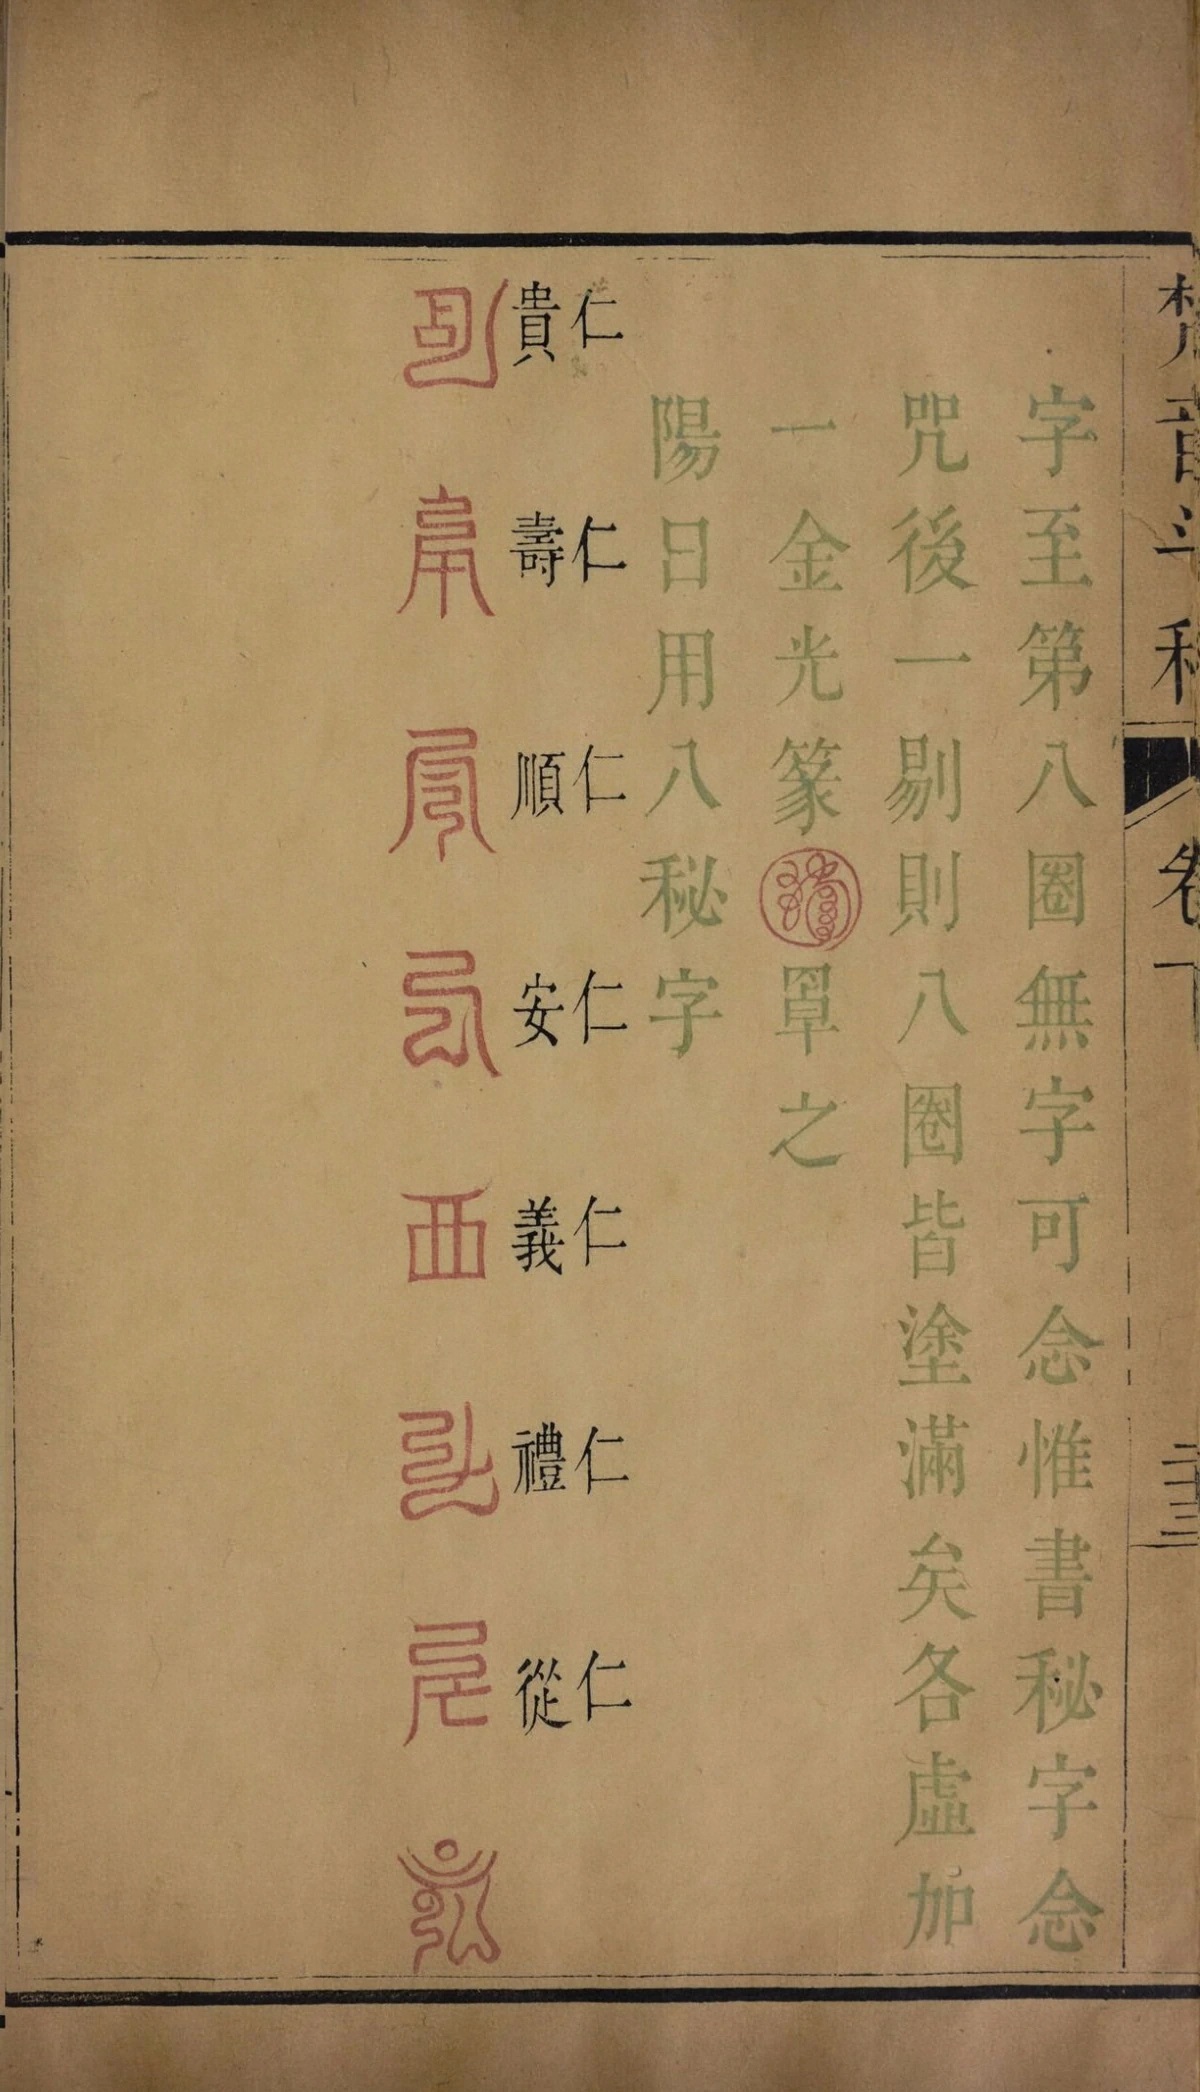 梵音斗科 卷下 二十三
字至第八圈無字可念惟書秘字念
咒後一剔則八圈皆塗滿矣各虛加
一金光篆罩之
陽日用八秘字
仁貴 仁壽 仁順 仁安 仁義 仁禮 仁從